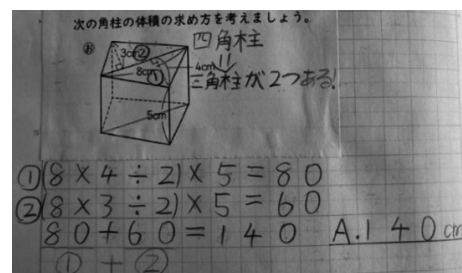 次の角柱の体積の求め方を考えましょう。
あ
四角柱
3cm②
8cm①
4cm
三角柱が2つある!
5cm
①(8×4÷2)×5=80
②(8×3÷2)×5=60
80+60=140 A.140cm
①+②